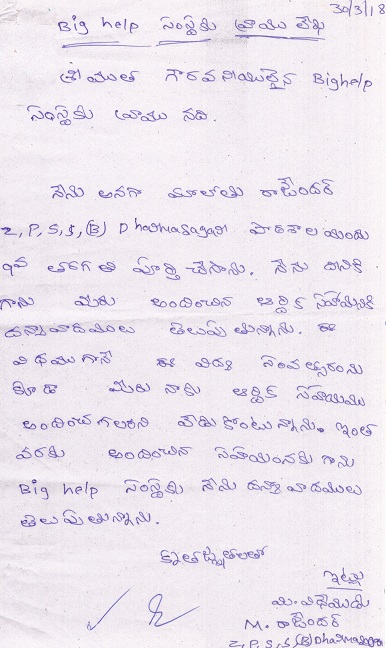 30/3/18
Big help సంస్థకు వ్రాయు లేఖ
శ్రీయుత గౌరవనీయులైన Bighelp
సంస్థకు వ్రాయునది.
నేను అనగా మాలోతు రాజేందర్
Z,P,S,S,(B) Dharmasagar పాఠశాల యందు
9వ తరగతి పూర్తి చేసాను. నేను దీనికి
గాను మీరు అందించిన ఆర్థిక సహాయానికి
దన్యావాదములు తెలుపుతున్నాను. ఈ
విధముగానే ఈ విద్య సంవత్సరంను
కూడా మీరు నాకు ఆర్థిక సహాయము
అందించగలరని వేడుకోంటున్నాను. ఇంత
వరకు అందించిన సహాయంనకు గాను
Big help సంస్థకు నేను దన్యావాదములు
తెలుపుతున్నాను.
కృతజ్ఞతలతో
ఇట్లు
మీ విధేయుడు
M. రాజేందర్
Z,P,S,S,(B) Dharmasagar